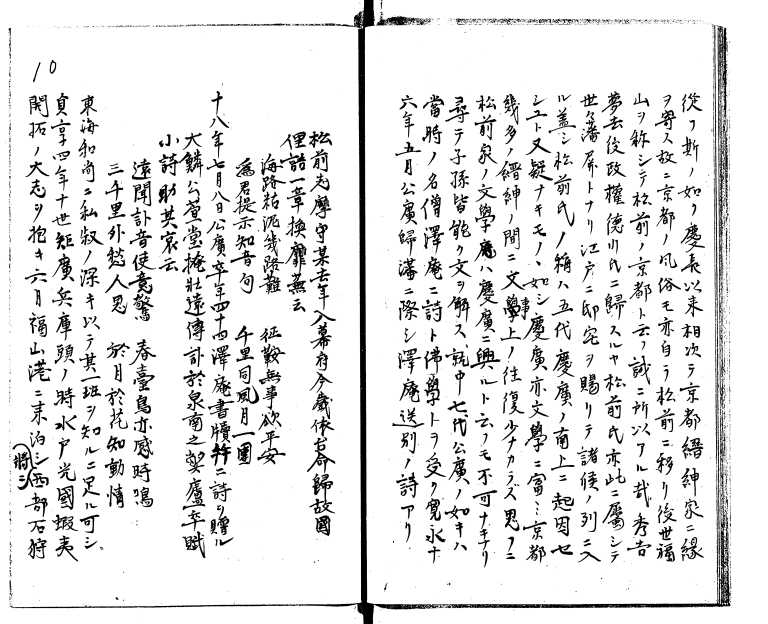 從フ斯ノ如ク慶長以来相次テ京都縉紳家ニ縁
ヲ寄ス故ニ京都ノ風俗モ亦自ラ松前ニ移リ後世福
山ヲ称シテ松前ノ京都ト云フ誠ニ所以アル哉秀吉
夢去後政權德川氏ニ歸スルヤ松前氏亦此ニ屬シテ
世々藩屏トナリ江戸ニ邸宅ヲ賜リテ諸侯ノ列ニ入
ル蓋シ松前氏ノ稱ハ五代慶廣ノ南上ニ起因セ
シコト又疑ナキモノヽ如シ慶廣亦文學ニ富ミ京都
幾多ノ縉紳ノ間ニ文學事上ノ往復少ナカラズ思フニ
松前家ノ文學ハ慶廣ニ興ルト云フモ不可ナキナリ
尋テ子孫皆能ク文ヲ解ス就中七代公廣ノ如キハ
當時ノ名僧澤庵ニ詩ト佛學トヲ受ク寛永十
六年五月公廣歸藩ニ際シ澤庵送別ノ詩アリ
松前志摩守某去年入幕府今歳依台命歸故國
俚語一章換靡蕪云
海路粘泥幾路難　征鞍無事欲平安
爲君提示知音句　千里同風月一團
十八年七月八日公廣卒年四十四澤庵書牘幷ニ詩ヲ贈ル
大鱗公萱堂掩壮遠傳訃於泉南之弊廬卒賦
小詩助其哀云
遠聞訃音使意驚　春臺鳥亦感時鳴
三千里外愁人思　於月於花知動情
東海和尚ニ私叙ノ深キ以テ其一班ヲ知ルニ足ル可シ
貞享四年十世矩廣兵庫頭ノ時水戸光國蝦夷
開拓ノ大志ヲ抱キ六月福山港ニ来泊シ西部石狩
(將ニ)
10